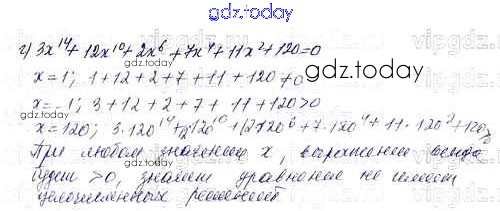 gdz.today
г) 3x¹⁴ + 12x¹⁰ + 2x⁶ + 7x⁴ + 11x² + 120 = 0
gdz.today
x = 1; 1 + 12 + 2 + 7 + 11 + 120 ≠ 0
x = -1; 3 + 12 + 2 + 7 + 11 + 120 > 0
x = 120; 3·120¹⁴ + 120¹⁰ + 120⁶ + 7·120⁴ + 11·120² + 120
При любом значении x, выражение всегда
будет > 0, значит уравнение не имеет
целочисленных решений
gdz.today